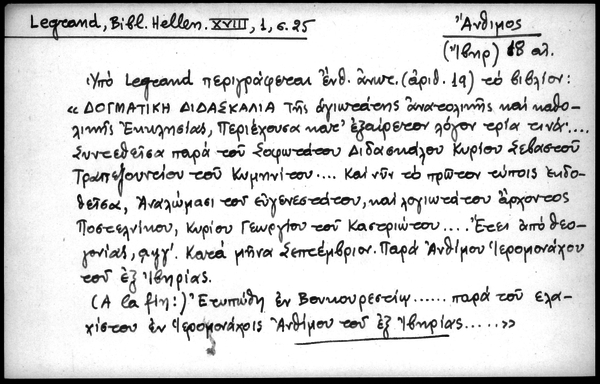 Legrand, Bibl. Hellen. XVIII, 1, σ. 25
Ἄνθιμος
(Ἴβηρ) 18 αἰ.
Ὑπό Legrand περιγράφεται ἐνθ. ἀνωτ. (ἀριθ. 19) τό βιβλίον:
« ΔΟΓΜΑΤΙΚΗ ΔΙΔΑΣΚΑΛΙΑ τῆς ἁγιωτάτης ἀνατολικῆς καί καθο-
λικῆς Ἐκκλησίας, Περιέχουσα κατ' ἐξαίρετον λόγον τρία τινά· ....
Συντεθεῖσα παρά τοῦ Σοφωτάτου Διδασκάλου Κυρίου Σεβαστοῦ
Τραπεζουντίου τοῦ Κυμηνίτου.... Καί νῦν τό πρῶτον τύποις ἐκδο-
θεῖσα, Ἀναλώμασι τοῦ εὐγενεστάτου, καί λογιωτάτου ἄρχοντος
Ποστελνίκου, Κυρίου Γεωργίου τοῦ Καστριώτου.... Ἔτει ἀπό θεο-
γονίας, αψγ'. Κατά μῆνα Σεπτέμβριον. Παρά Ἀνθίμου Ἱερομονάχου
τοῦ ἐξ Ἰβηρίας.
(A la fin:) Ἐτυπώθη ἐν Βουκουρεστίῳ...... παρά τοῦ ἐλα-
χίστου ἐν Ἱερομονάχοις Ἀνθίμου τοῦ ἐξ Ἰβηρίας.....»